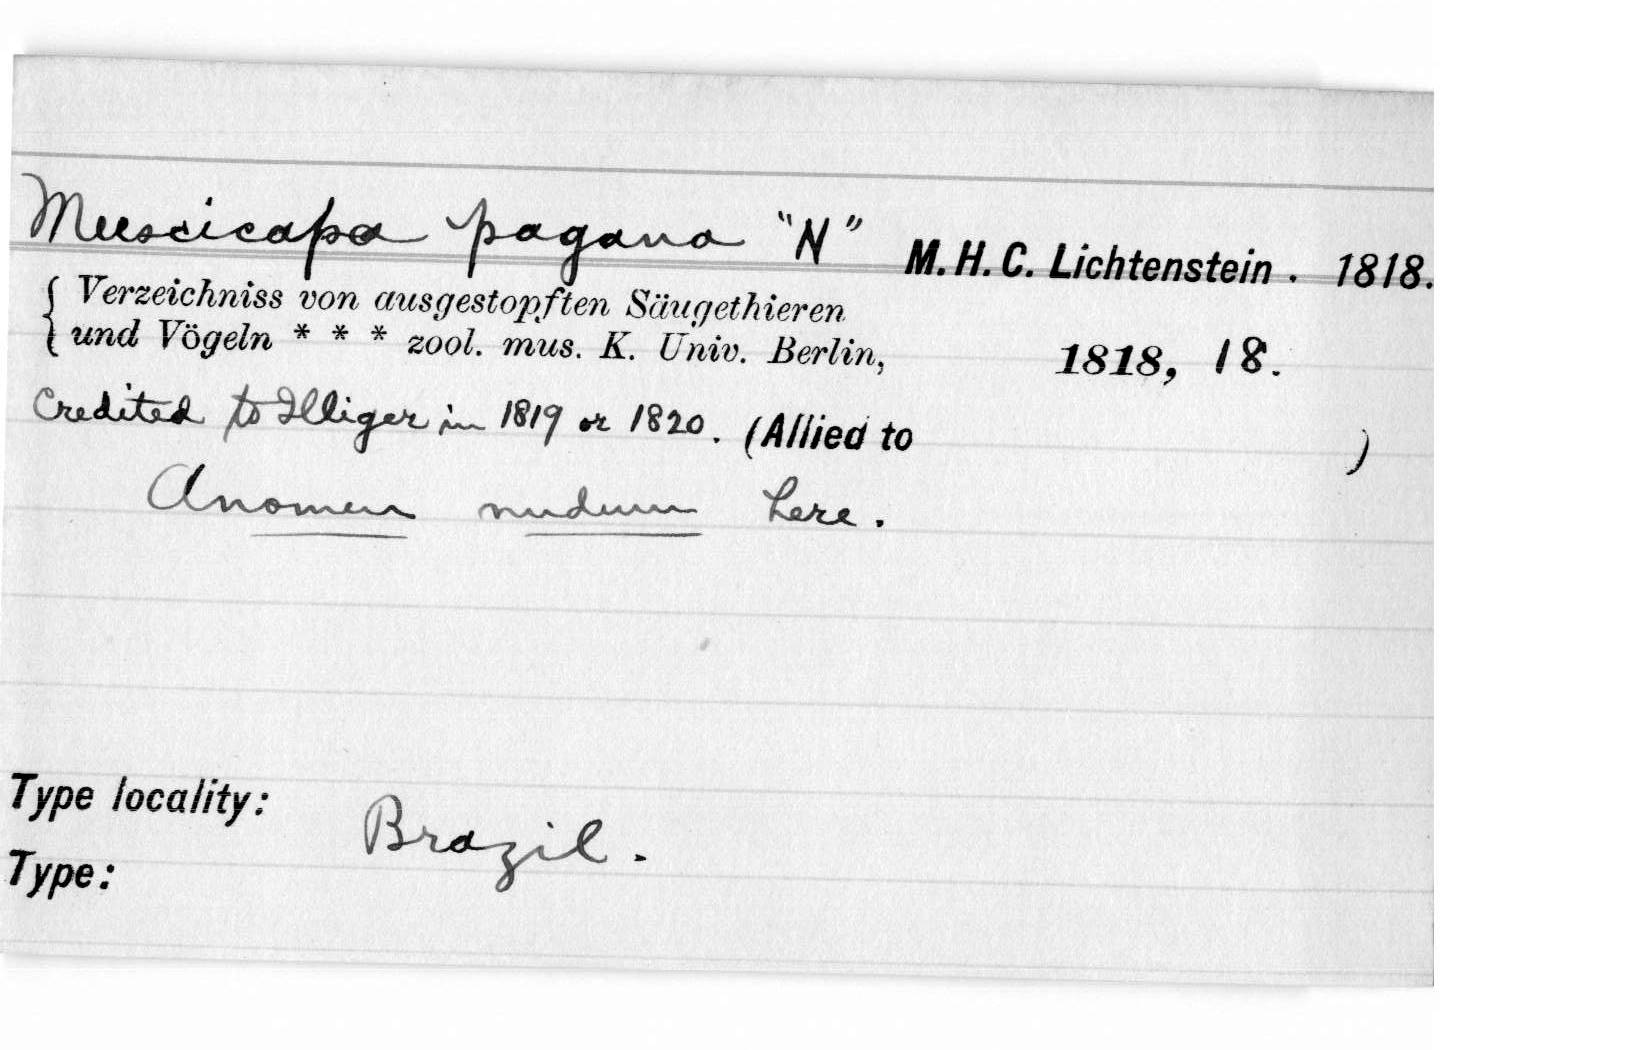 Muscicapa pagana "N" M. H. C. Lichtenstein. 1818.
{ Verzeichniss von ausgestopften Säugethieren
und Vögeln * * * zool. mus. K. Univ. Berlin, 1818, 18.
Credited to Illiger in 1819 or 1820. (Allied to )
A nomen nudum here.
Type locality: Brazil.
Type: